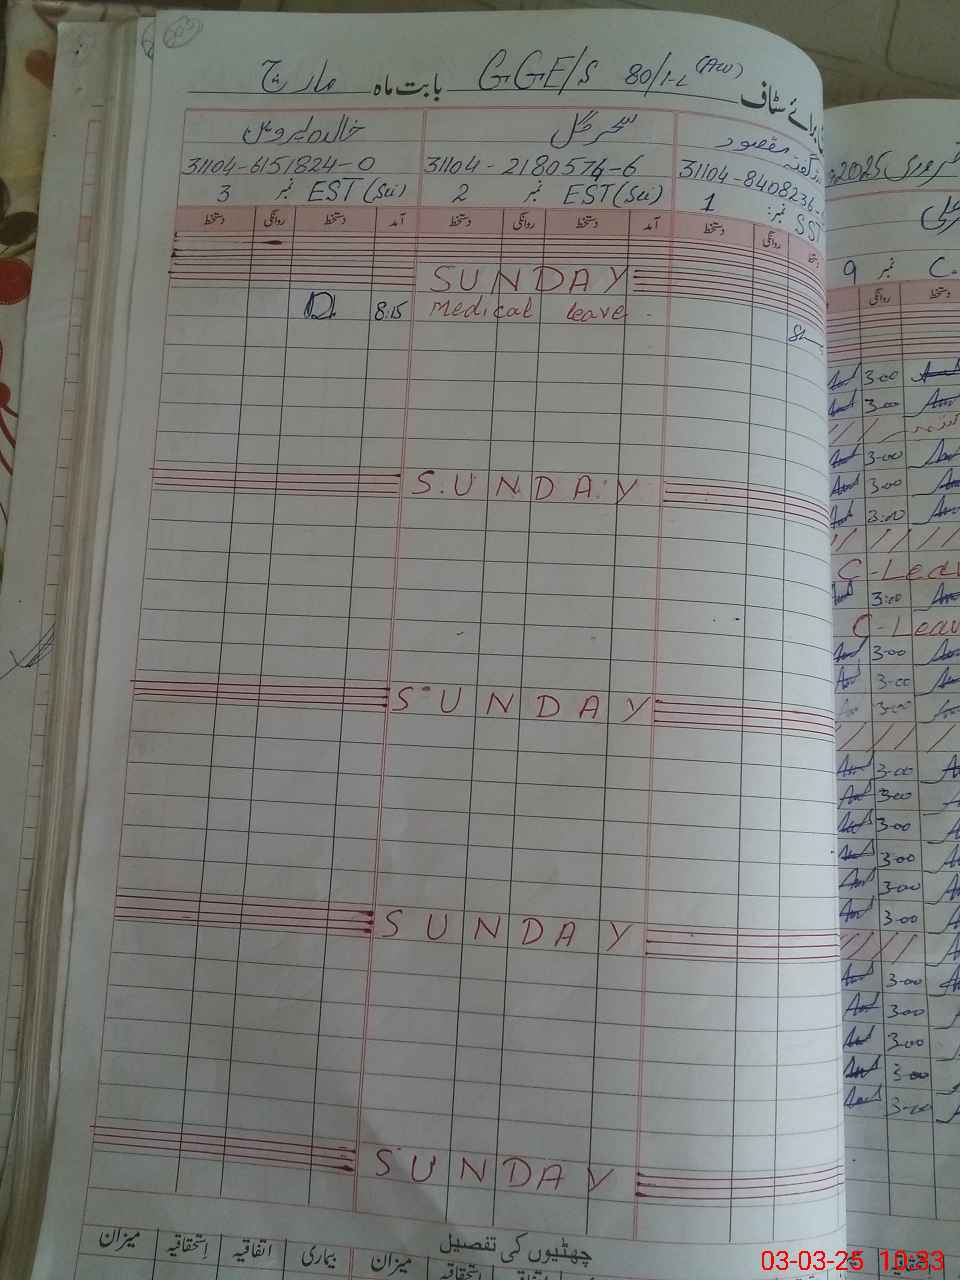 برائے سٹاف GGE/S 80/1-L (AW) بابت ماہ مارچ
مقصود
سحر گل
خالدہ پروین
31104-8408236-
31104-2180574-6
31104-6151824-0
SST نمبر: 1
EST (Sci) نمبر 2
EST (Sci) نمبر 3
دستخط روانگی دستخط
آمد دستخط روانگی دستخط
آمد دستخط روانگی دستخط
SUNDAY
medical leave
8:15
SUNDAY
SUNDAY
SUNDAY
SUNDAY
چھٹیوں کی تفصیل
میزان بیماری اتفاقیہ استحقاقیہ میزان
فروری 2025
9 نمبر C.
روانگی دستخط
3-00
3-00
3-00
3-00
3:00
C-Leav
3:00
C-Leav
3-00
3-00
3-00
3-00
3-00
3-00
3-00
3-00
3-00
3-00
3-00
3-00
3-00
3-00
03-03-25 10:33